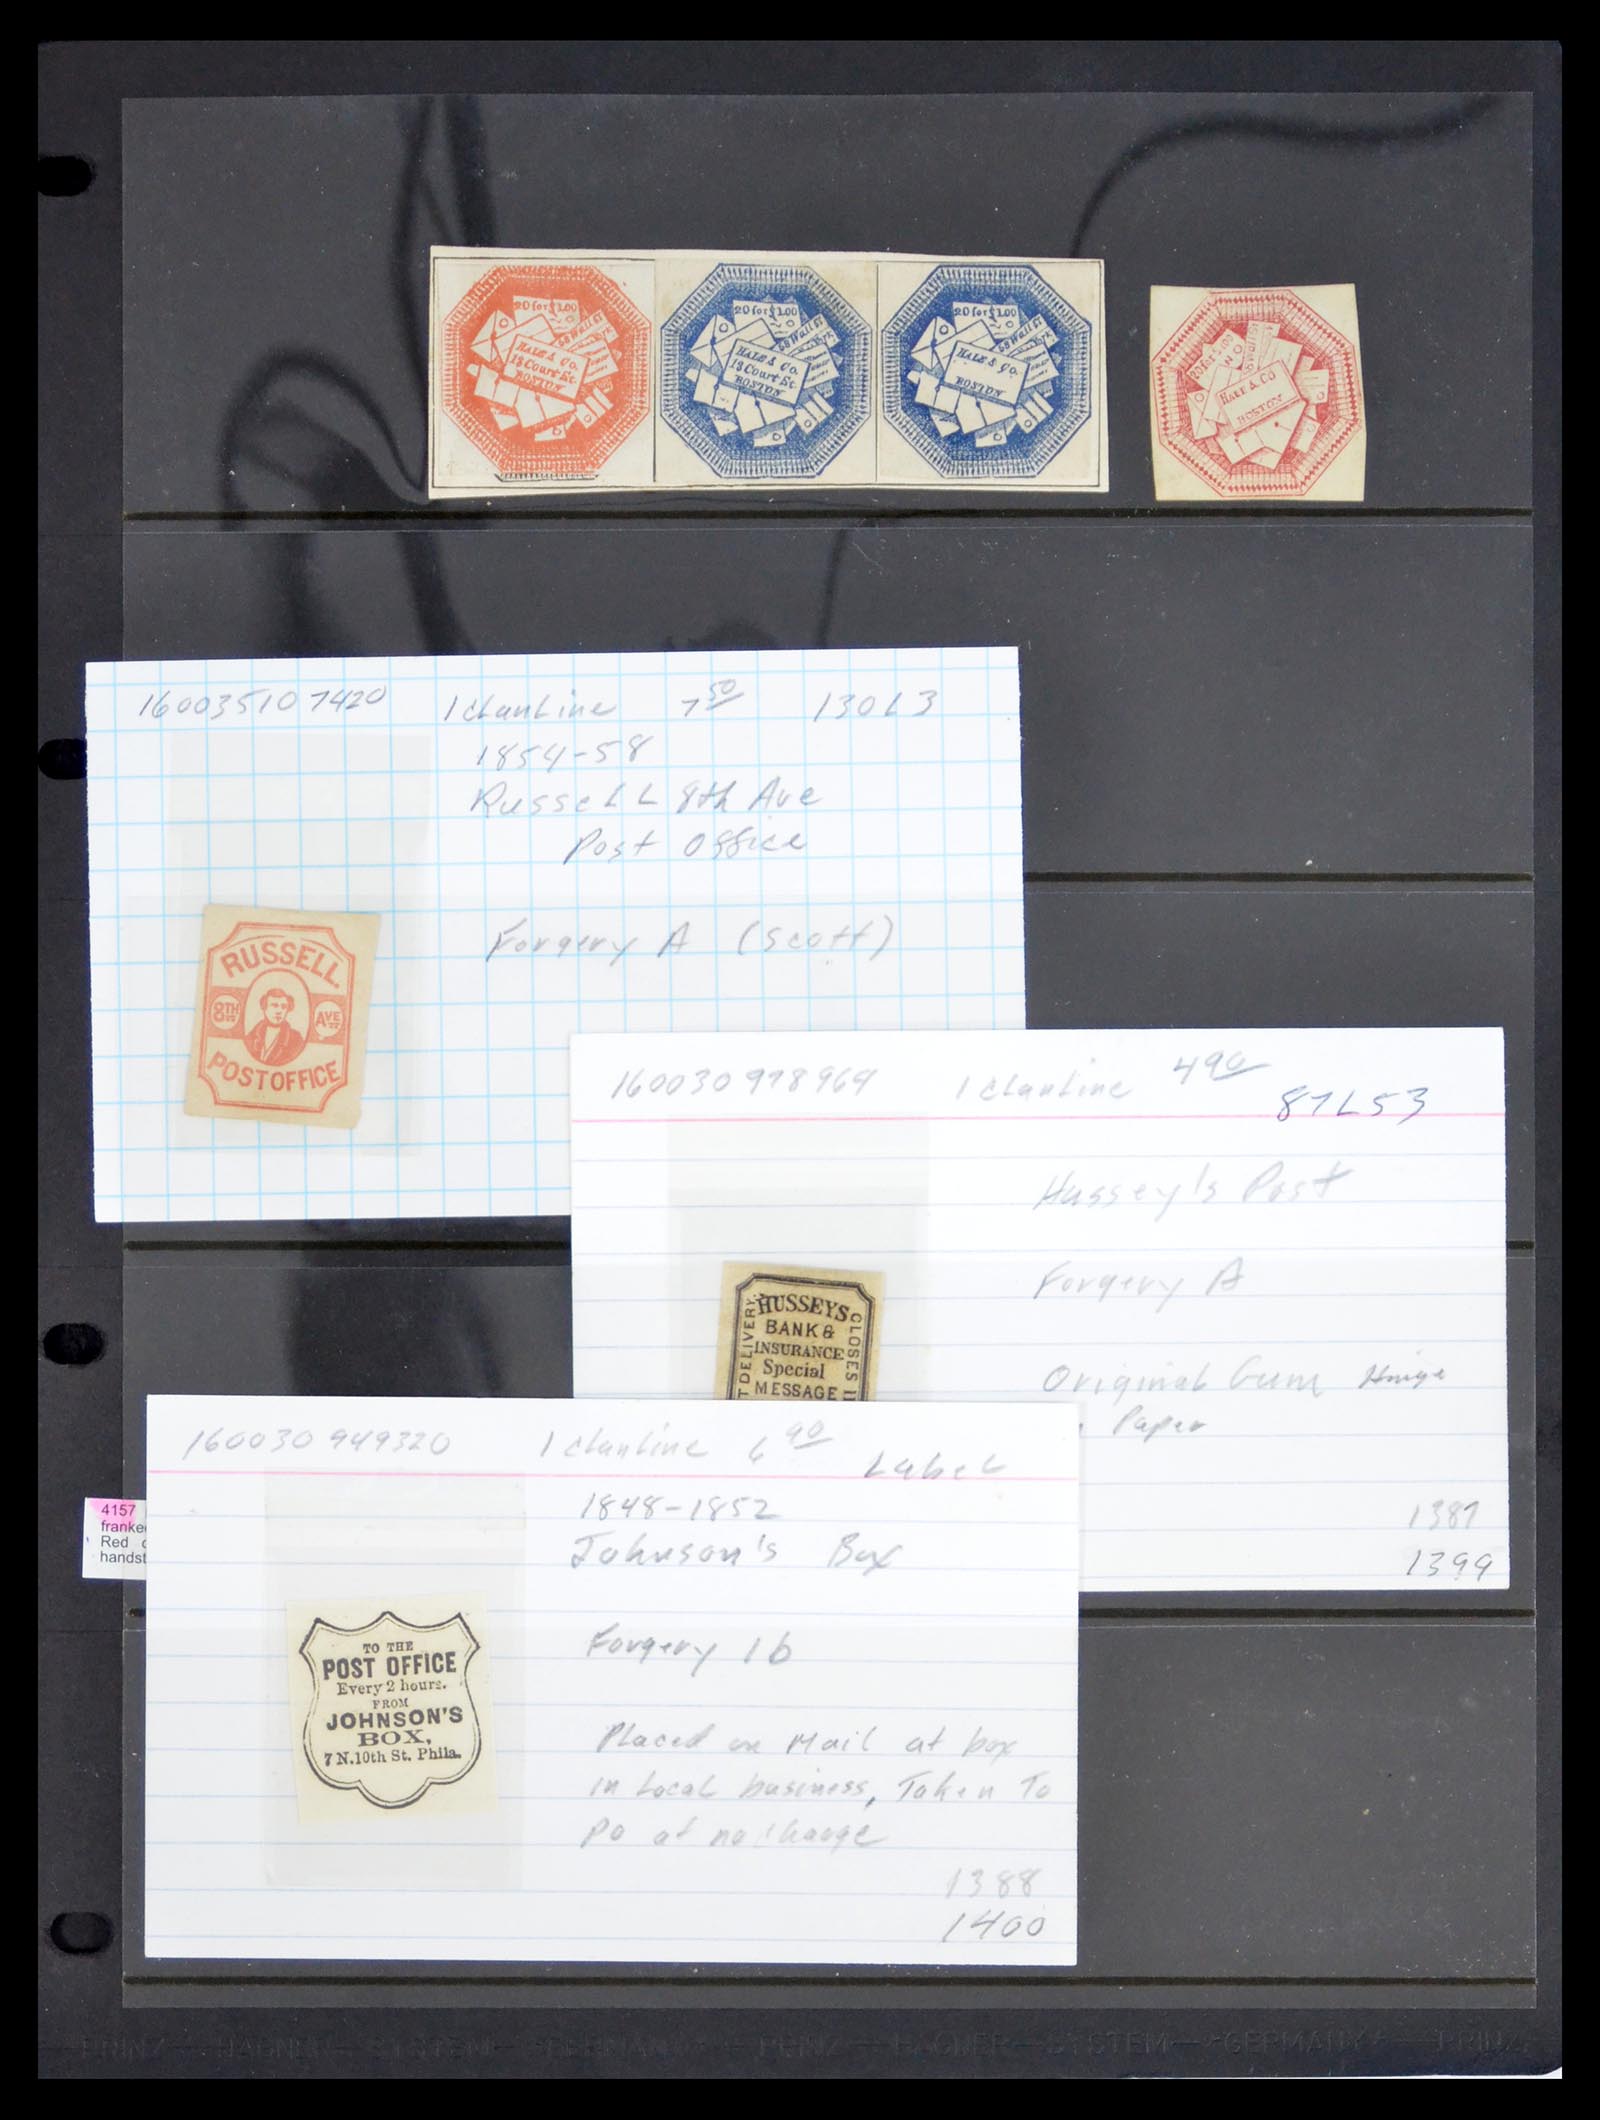 20 for $1.00
58 Wall St
HALE & Co.
13 Court St.
BOSTON
20 for $1.00
58 Wall St
HALE & Co.
13 Court St.
BOSTON
20 for $1.00
58 Wall St
HALE & Co.
BOSTON
HALE & Co
BOSTON
160035107420 1clanline 7 50 130L3
1854-58
Russell 8th Ave
Post Office
Forgery A (Scott)
RUSSELL
8TH AVE
POST OFFICE
160030978969 1clanline 4 90
87L53
Hussey's Post
Forgery A
Original Gum Hinge
Paper
1387
1399
HUSSEYS
BANK &
INSURANCE
Special
MESSAGE
T DELIVERY.
CLOSES
160030949320 1clanline 6 90 Label
1848-1852
Johnson's Box
Forgery 1b
Placed on Mail at box
in Local business, Taken To
PO at no charge
1388
1400
TO THE
POST OFFICE
Every 2 hours.
FROM
JOHNSON'S
BOX,
7 N.10th St. Phila.
4157
franked
Red
handst
PRINZ — HAGNER — SYSTEM — *GERMANY* — PRINZ — HAGNER — SYSTEM — *GERMANY* — PRINZ